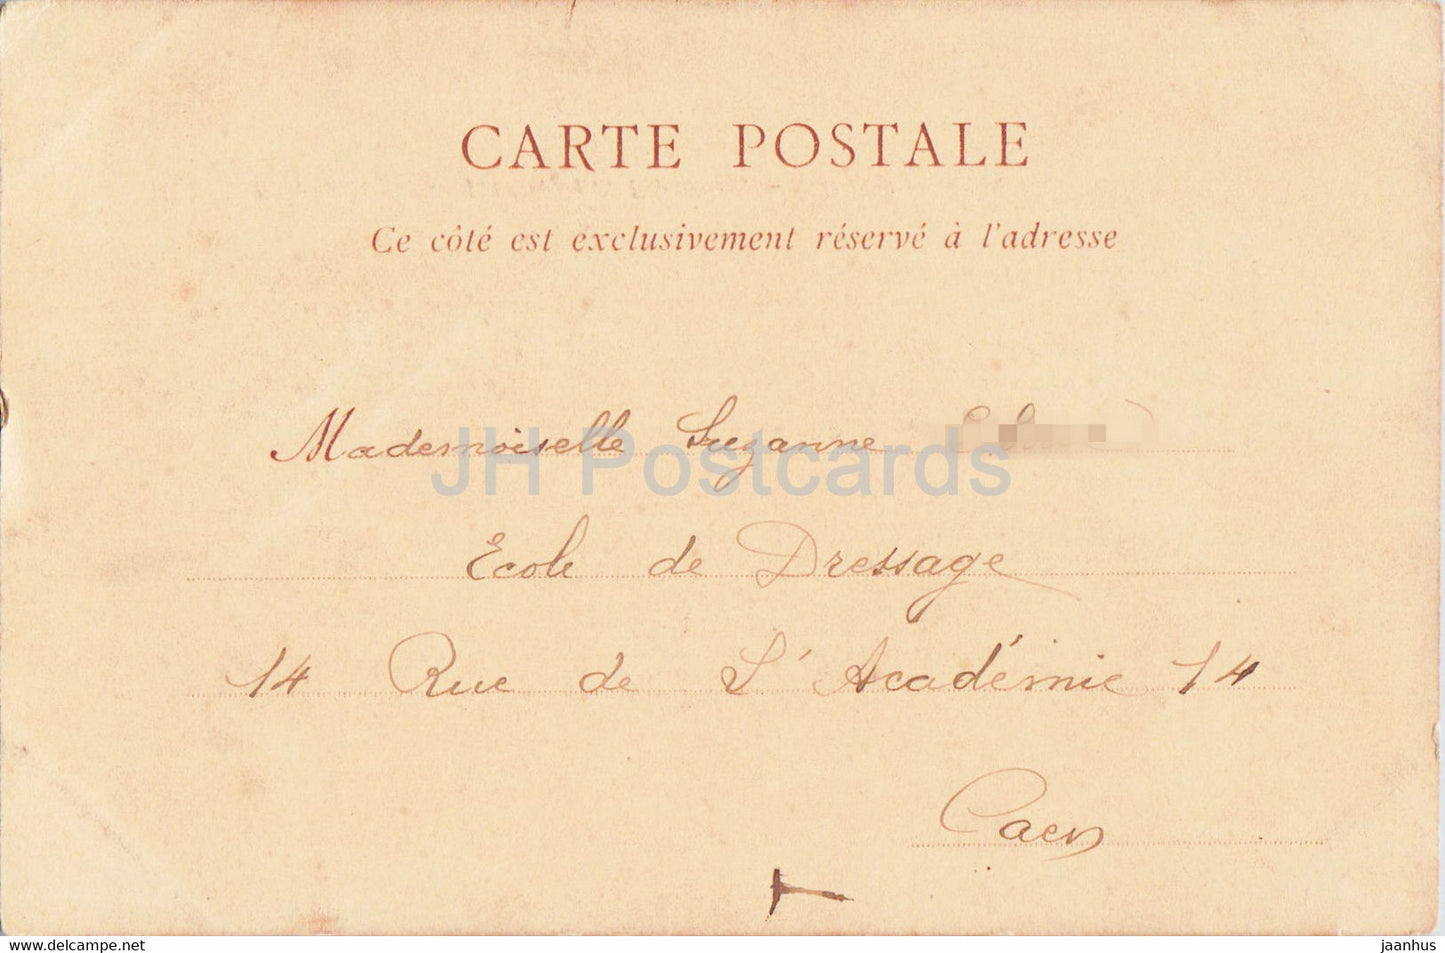 CARTE POSTALE
Ce côté est exclusivement réservé à l'adresse
Mademoiselle Suzanne
JH Postcards
Ecole de Dressage
14 Rue de L'Académie 14
Caen
www.delcampe.net
jaanhus